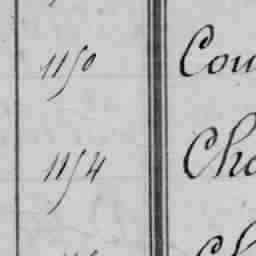 1150 Cou
1154 Cha